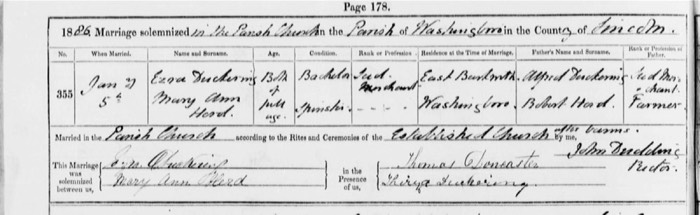 Page 178.
1886 Marriage solemnized in the Parish Church in the Parish of Washingboro in the County of Lincoln.
No. When Married. Name and Surname. Age. Condition. Rank or Profession. Residence at the Time of Marriage. Father's Name and Surname. Rank or Profession of Father.
355 Jan 21 Ezra Duckering Both of full age. Bachelor Seed Merchant East Alfred Duckering Seed Merchant.
5th Mary Ann Hard. Spinster. Washingboro. Robert Hard. Farmer.
Married in the Parish Church according to the Rites and Ceremonies of the Established Church after banns. by me,
This Marriage was solemnized between us, Duckering Mary Ann Hard in the Presence of us, Thomas Doncaster Thirza Duckering
John Rector.